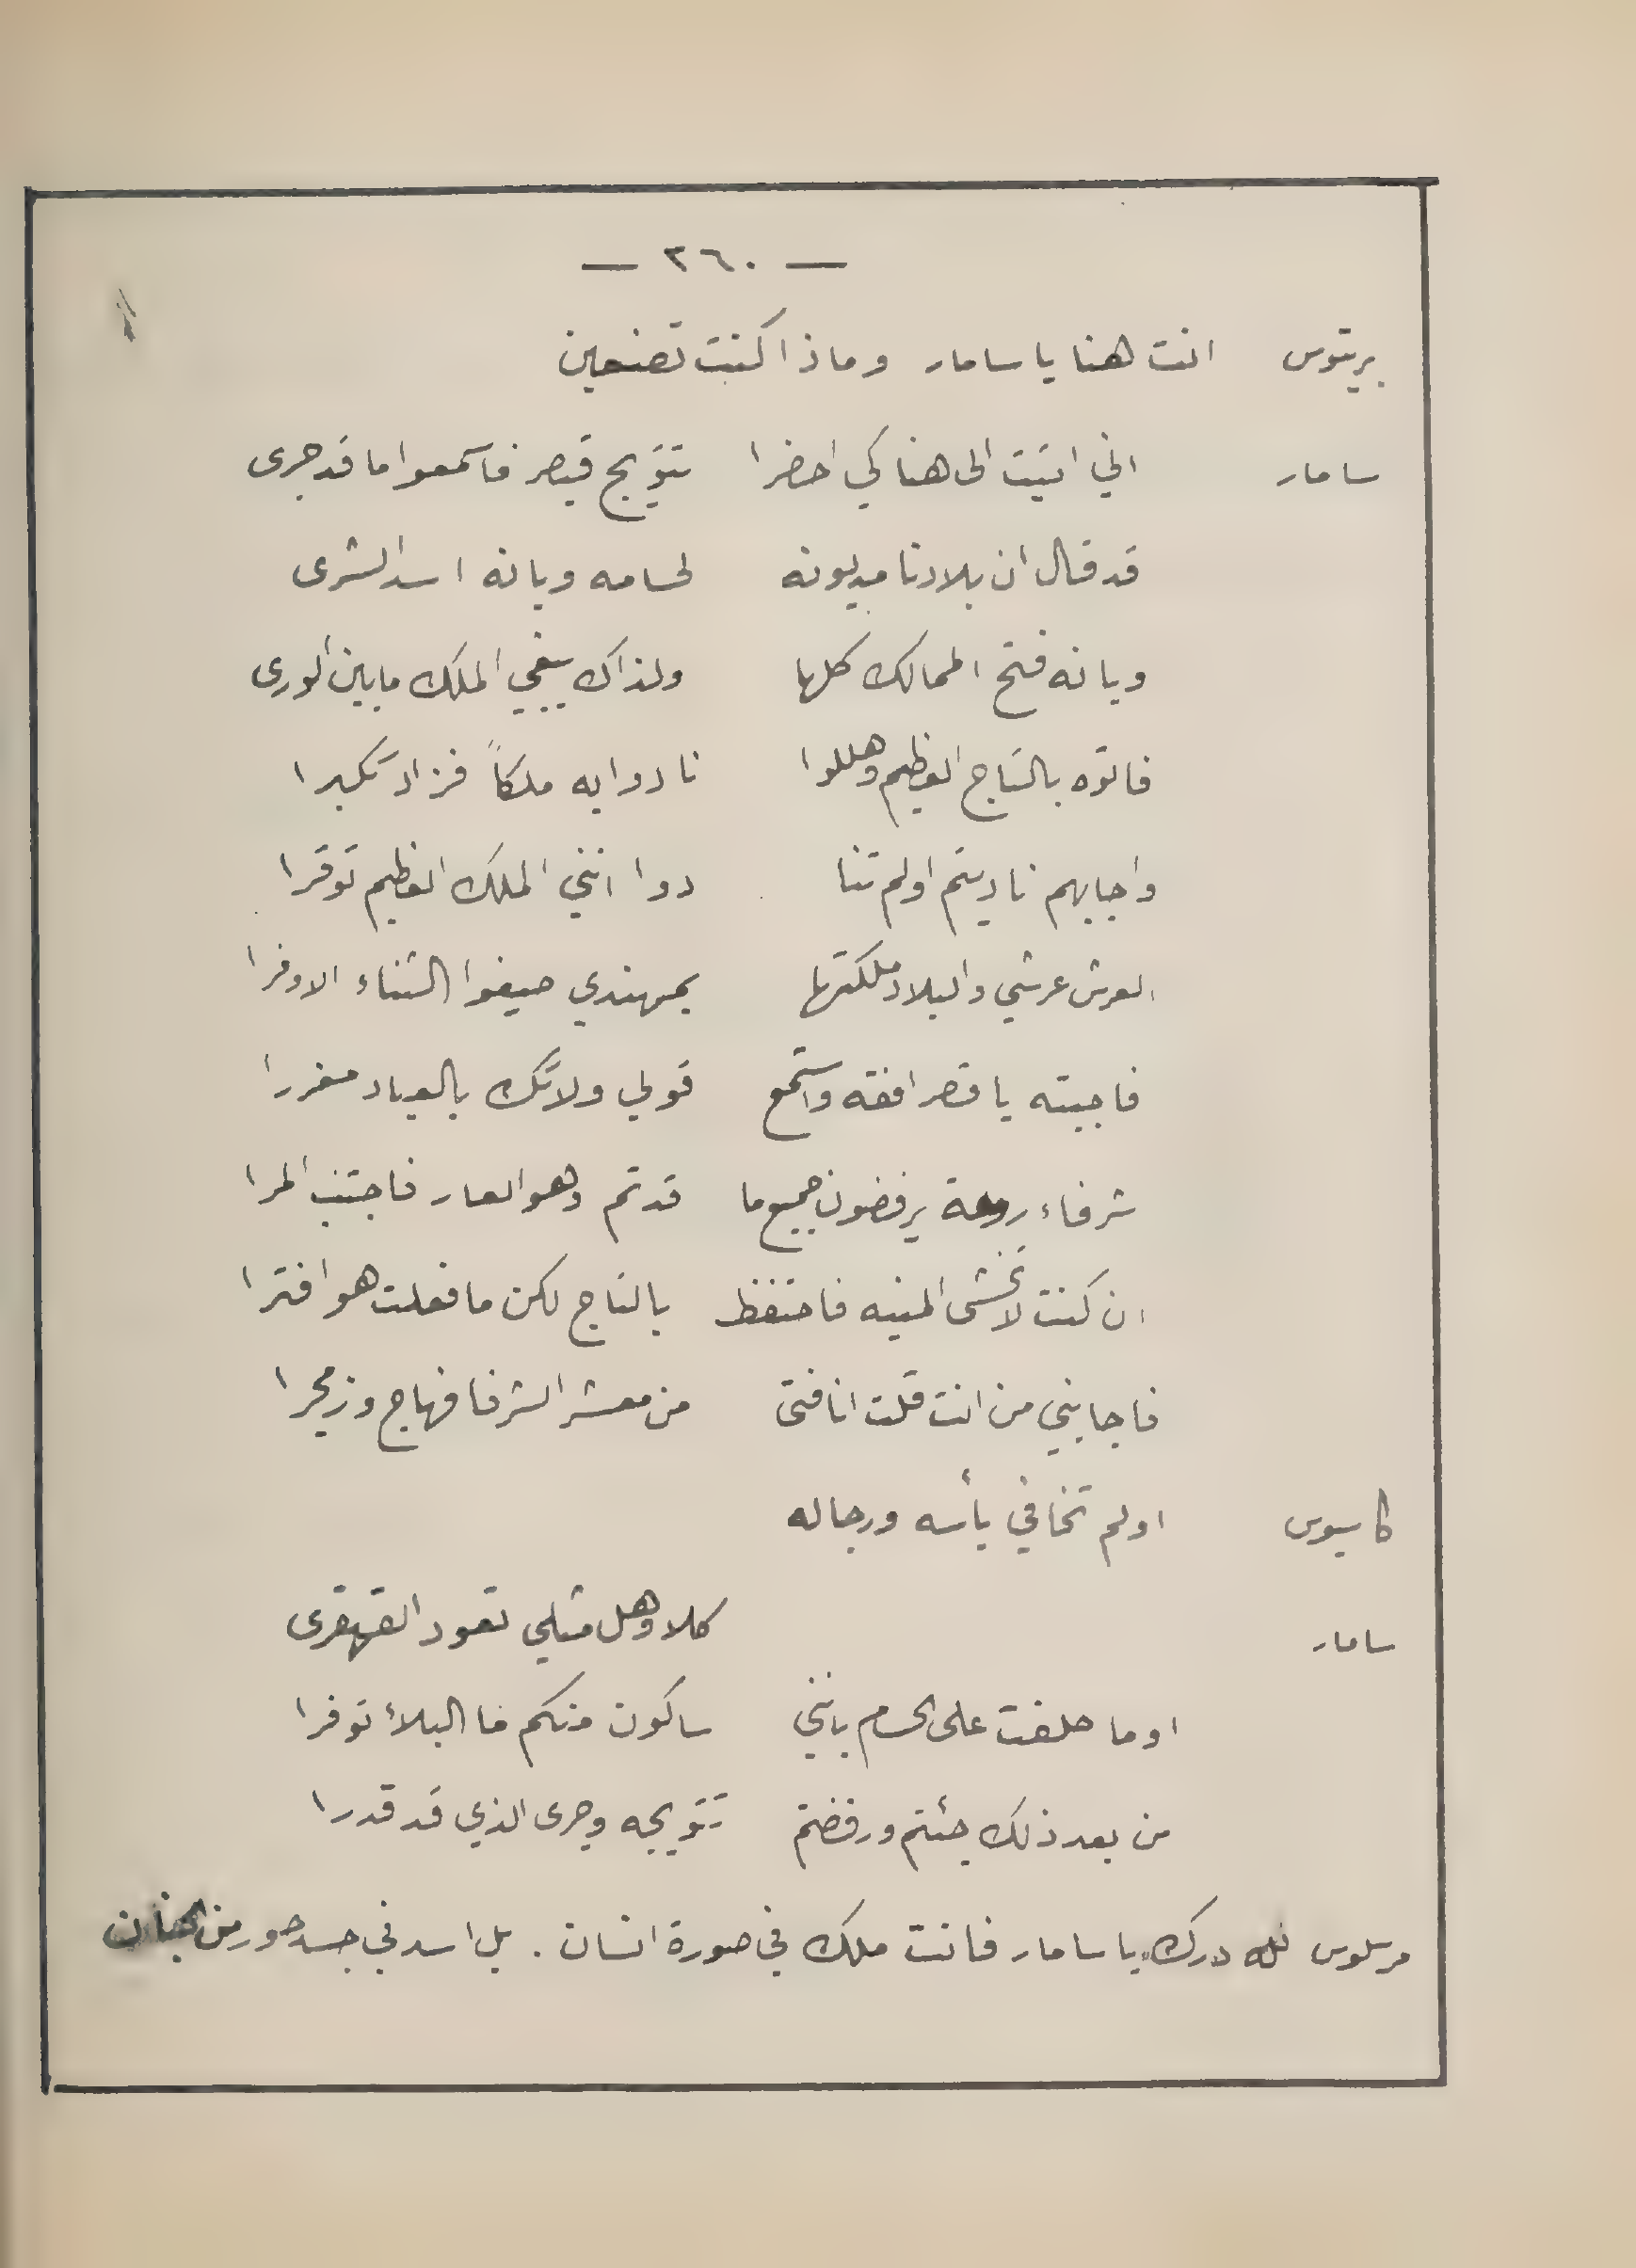 — ٣٦٠ —
بريتوس انت هنا يا سامار وماذا كنت تصنعين
سامار اني اتيت الى هنا كي احضرا تتويج قيصر فاسمعوا ما قد جرى
قد قال ان بلادنا مديونه لحسامه وبانه اسد الشرى
وبانه فتح الممالك كلها ولذاك يبغي الملك ما بين الورى
فاتوه بالتاج العظيم وهللوا نادوا به ملكاً فزاد تكبرا
واجابهم ناديتم اولم تنا دوا انني الملك العظيم توقرا
العرش عرشي والبلاد ملكتها بمهندي صيغوا الثناء الاوفرا
فاجبته يا قصر افقه واستمع قولي ولا تك بالعباد مغررا
شرفاء رومة يرفضون جميع ما قد تم وهو العار فاجتنب المرا
ان كنت لا تخشى المنيه فاحتفظ بالتاج لكن ما فعلت هو افترا
فاجابني من انت قلت انا فتى من معشر الشرفا فهاج وزمجرا
كاسيوس اولم تخافي بأسه ورجاله
سامار كلا وهل مثلي تعود القهقرى
اوما حلفت على الحسام بانني ساكون منكم ما البلأ توفرا
من بعد ذلك جئتم ورفضتم تتويجه وجرى الذي قد قدرا
مرسلوس لله درك يا سامار فانت ملك في صورة انسان . بل اسد في جسد حور من الجنان